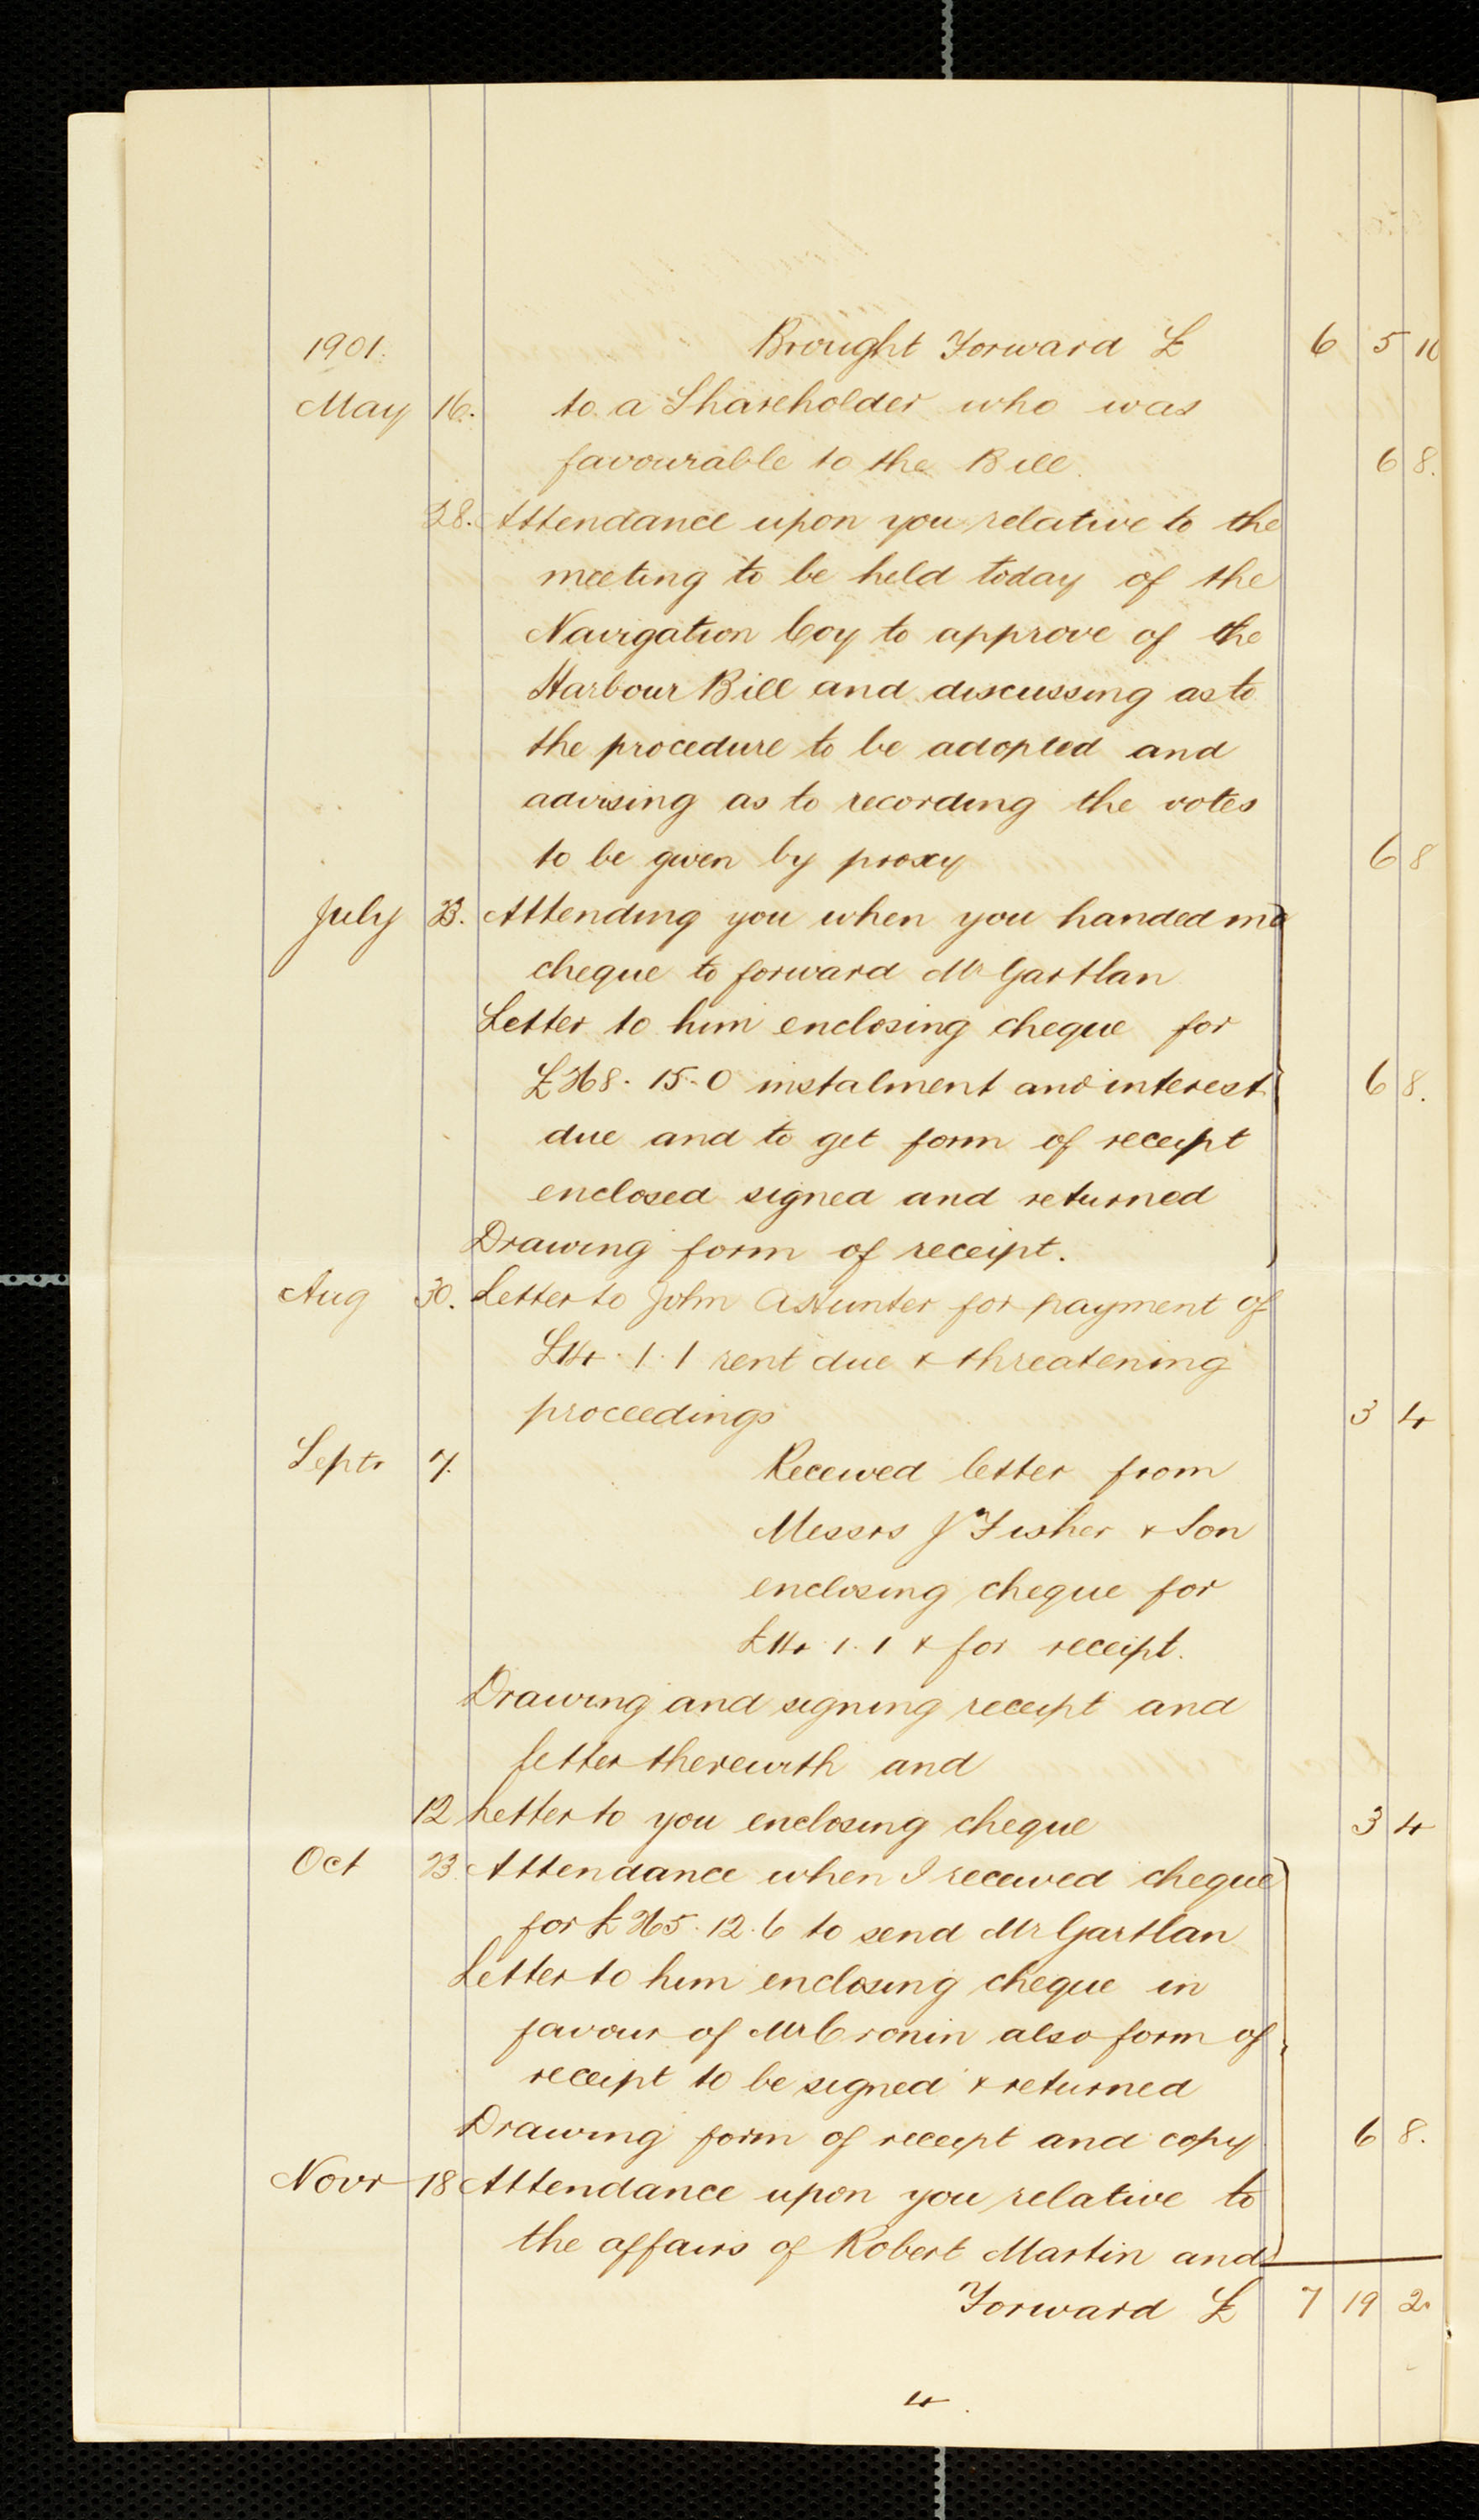 1901. Brought Forward £ 6 5 10
May 16. to a Shareholder who was
favourable to the Bill. 6 8.
28. Attendance upon you relative to the
meeting to be held today of the
Navigation Coy to approve of the
Harbour Bill and discussing as to
the procedure to be adopted and
advising as to recording the votes
to be given by proxy 6 8
July 23. Attending you when you handed me
cheque to forward Mr Gartlan
Letter to him enclosing cheque for
£268. 15. 0 instalment and interest 6 8.
due and to get form of receipt
enclosed signed and returned
Drawing form of receipt.
Aug 30. Letter to John A Hunter for payment of
£14. 1. 1 rent due & threatening
proceedings 3 4
Septr 7. Received letter from
Messrs J Fisher & Son
enclosing cheque for
£14. 1. 1 & for receipt.
Drawing and signing receipt and
letter therewith and
12 Letter to you enclosing cheque 3 4
Oct 23. Attendance when I received cheque
for £265. 12. 6 to send Mr Gartlan
Letter to him enclosing cheque in
favour of Mr Cronin also form of
receipt to be signed & returned
Drawing form of receipt and copy 6 8.
Novr 18 Attendance upon you relative to
the affairs of Robert Martin and
Forward £ 7 19 2.
4.